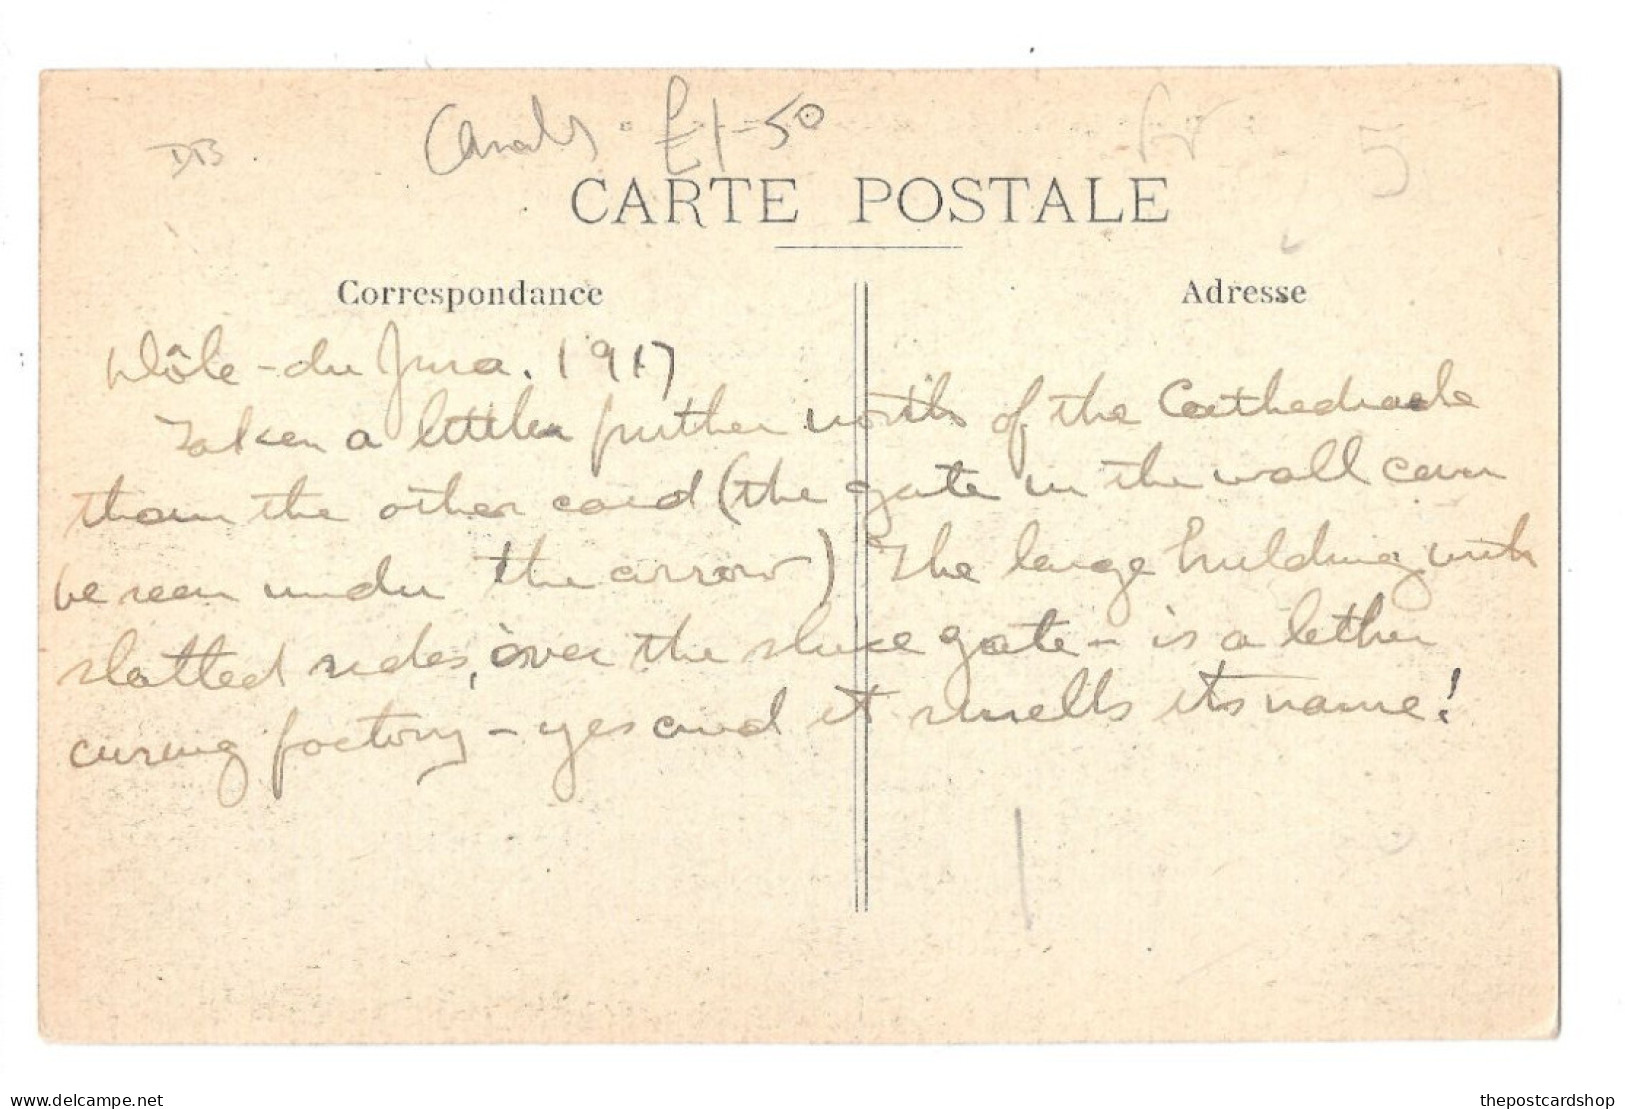 Canals. £1-50 Fr 5
DB
CARTE POSTALE
Correspondance
Adresse
Dôle-du Jura. 1917
Taken a little further north of the Cathedrale
than the other card (the gate in the wall can
be seen under the arrow) The large building with
slatted sides, over the sluce gate - is a lether
curing factory - yes and it smells its name!
delcampe.net
thepostcardshop